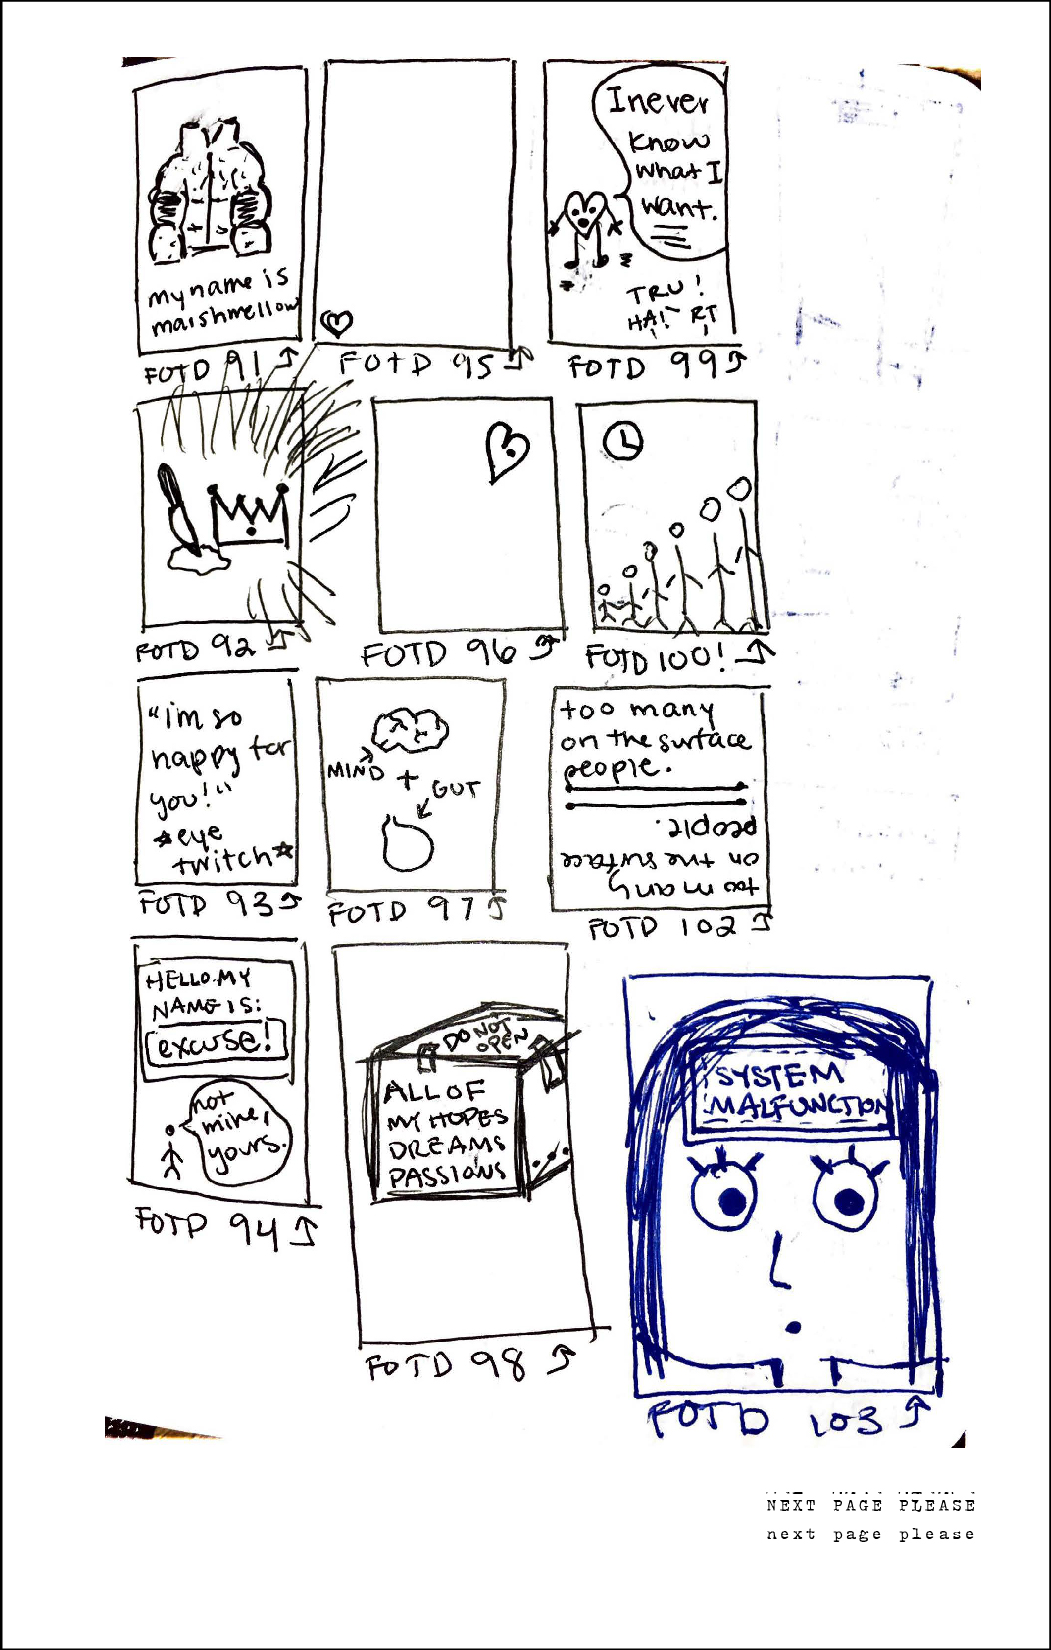 my name is
marshmellow
FOTD 91
FOTD 95
I never
know
what I
want.
TRU!
HA! RT
FOTD 99
FOTD 92
FOTD 96
FOTD 100!
"i'm so
happy for
you!"
*eye
twitch*
FOTD 93
MIND + GUT
FOTD 97
too many
on the surface
people.
too many
on the surface
people.
FOTD 102
HELLO MY
NAME IS:
excuse!
not
mine,
yours.
FOTD 94
DO NOT
OPEN
ALL OF
MY HOPES
DREAMS
PASSIONS
FOTD 98
SYSTEM
MALFUNCTION
FOTD 103
NEXT PAGE PLEASE
next page please